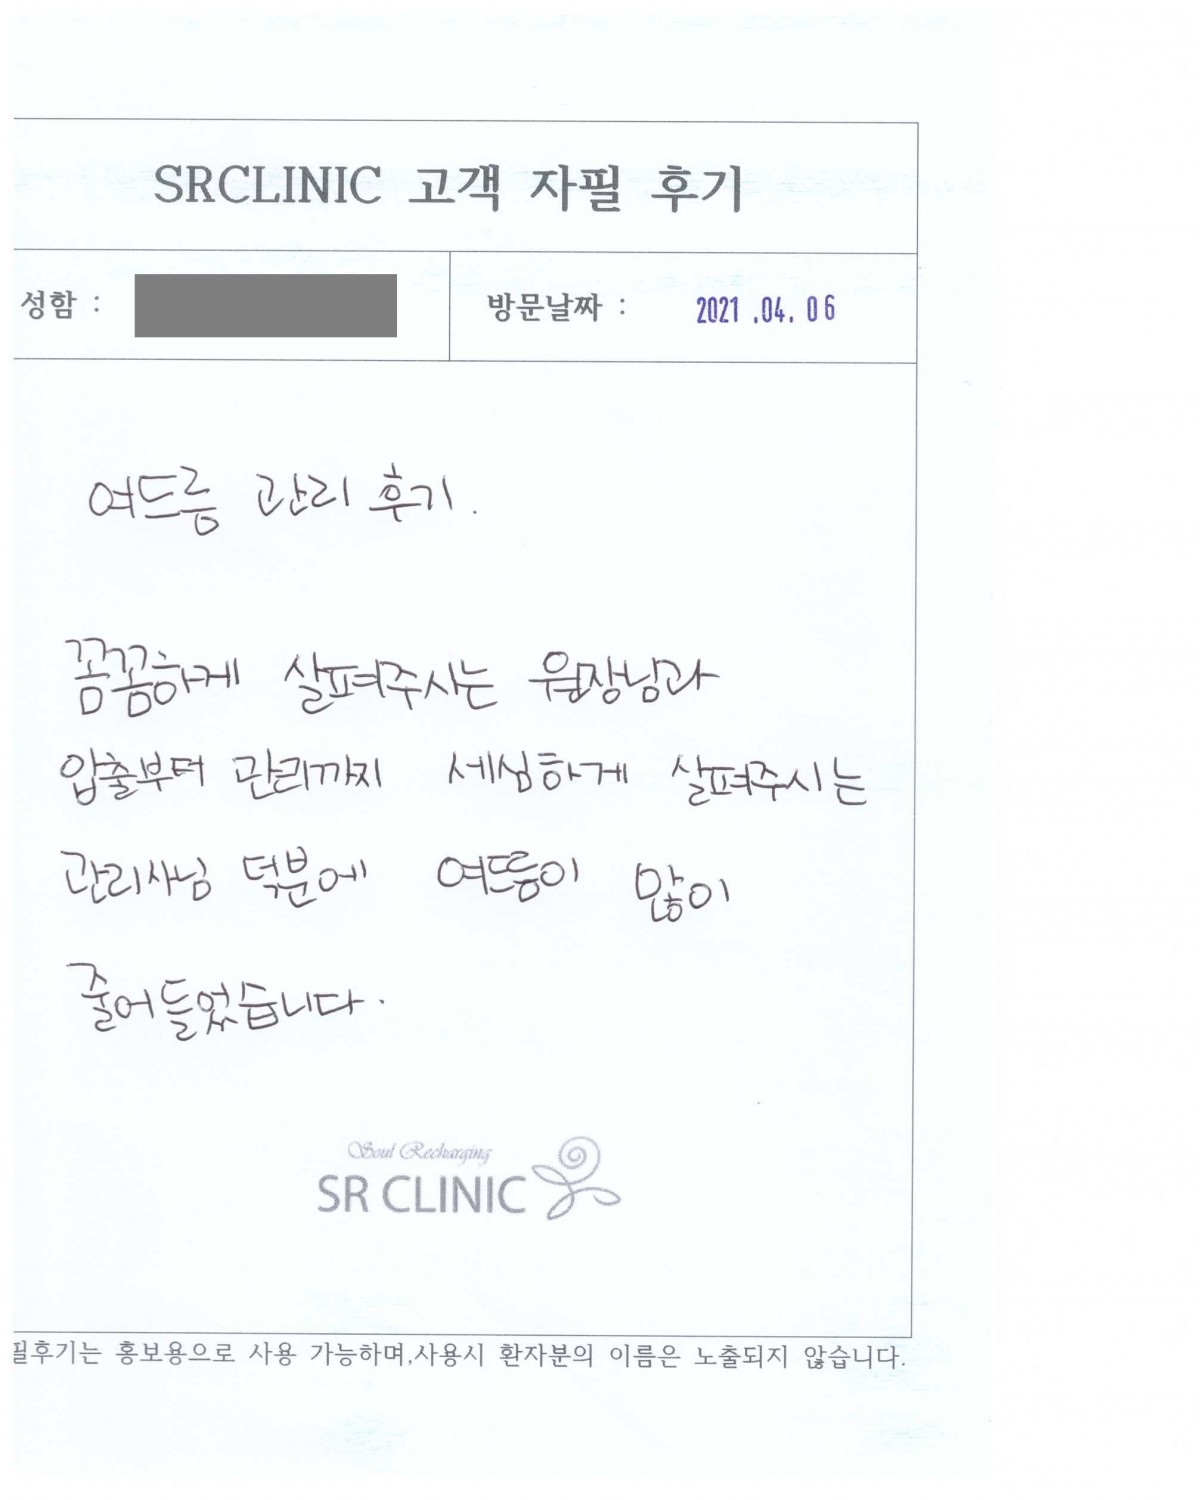 SRCLINIC 고객 자필 후기
성함 :
방문날짜 : 2021 .04. 06
여드름 관리 후기.
꼼꼼하게 살펴주시는 원장님과
압출부터 관리까지 세심하게 살펴주시는
관리사님 덕분에 여드름이 많이
줄어들었습니다.
Soul Recharging
SR CLINIC
필후기는 홍보용으로 사용 가능하며,사용시 환자분의 이름은 노출되지 않습니다.